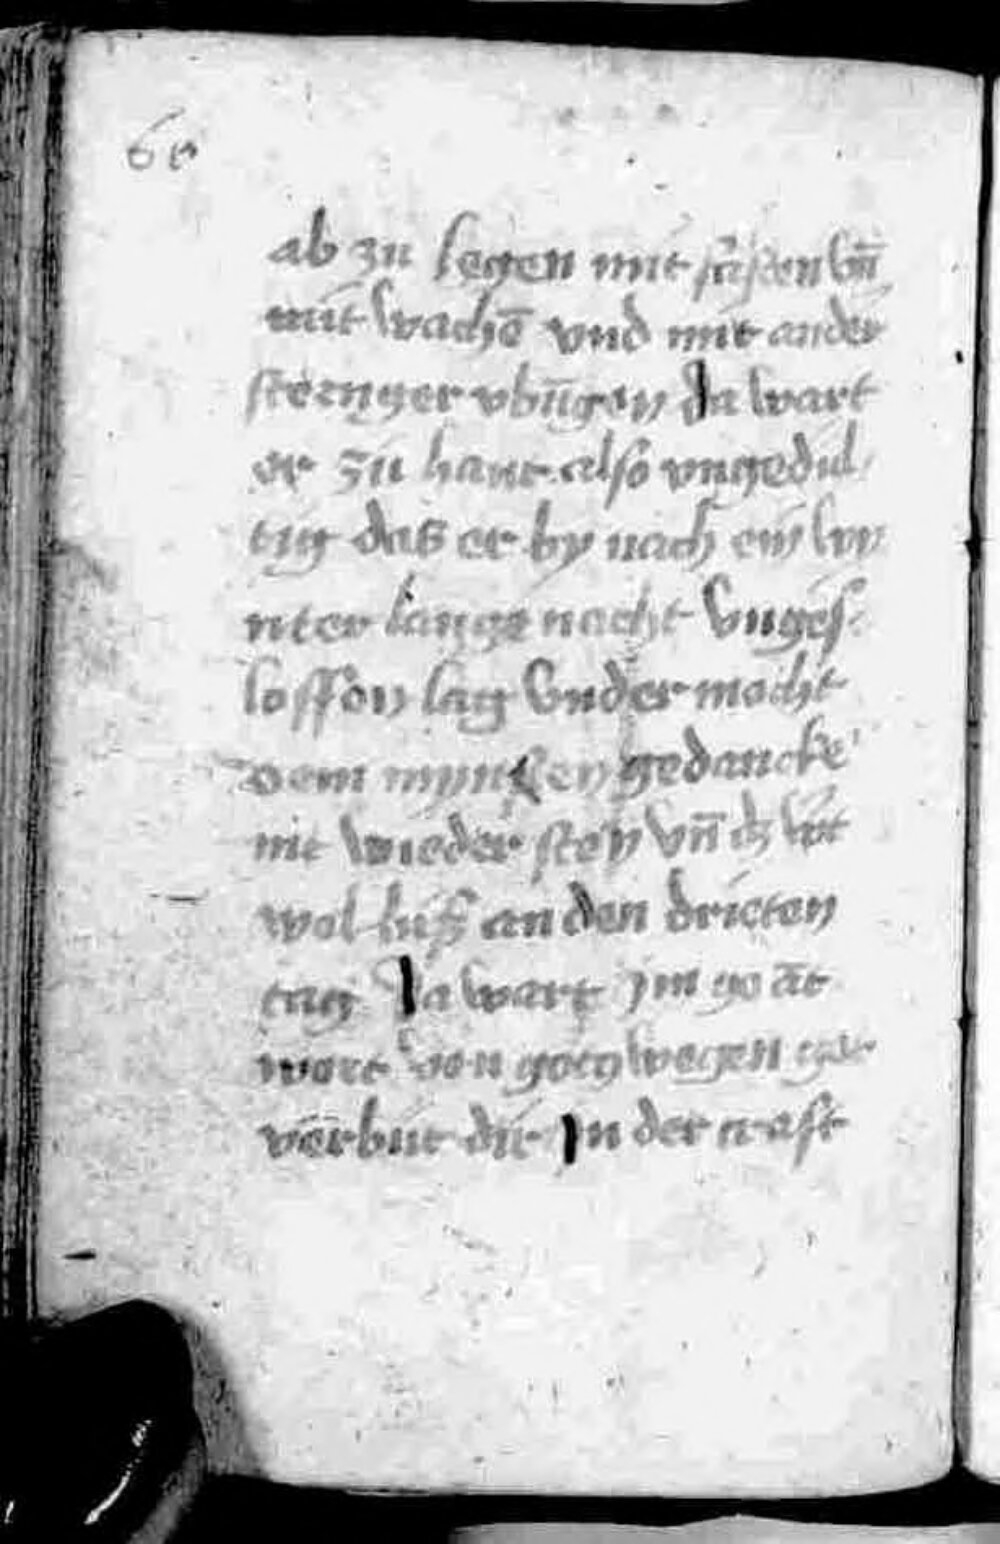 6v
ab zu legen mit fasten vñ
mit wachē vnd mit ander
strenger vbūgen da wart
er zu hant also vngedul
tig daß er by nach ein wi
nter lange nacht vnges
loffen lag vnd er mocht
dem mynsten gedancke
nit wieder sten vñ dz wert
wol biß an den dritten
tag Da wart jm
wort von gotz wegen
verbut dir In der craft